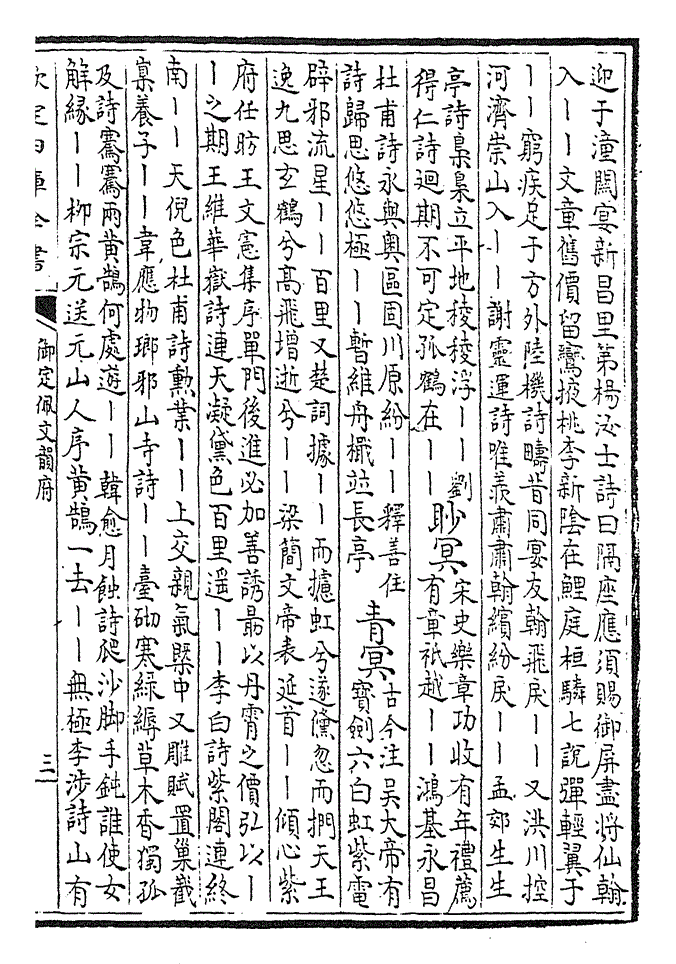 迎于潼關宴新昌里第楊汝士詩曰隔座應須賜御屏盡將仙翰
入丨丨文章舊價留鸞掖桃李新陰在鯉庭桓驎七說彈輕翼于
丨丨窮疾足于方外陸機詩疇昔同宴友翰飛戾丨丨又洪川控
河濟崇山入丨丨謝靈運詩唯羨肅肅翰繽紛戾丨丨孟郊生生
亭詩裊裊立平地稜稜浮丨丨劉
得仁詩迴期不可定孤鶴在丨丨
眇冥
宋史樂章功收有年禮薦
有章祇越丨丨鴻基永昌
杜甫詩永與奧區固川原紛丨丨釋善住
詩歸思悠悠極丨丨暫維舟檝竝長亭
青冥
古今注吳大帝有
寶劍六白虹紫電
辟邪流星丨丨百里又楚詞據丨丨而攄虹兮遂儵忽而捫天王
逸九思玄鶴兮高飛增逝兮丨丨梁簡文帝表延首丨丨傾心紫
府任昉王文憲集序單門後進必加善誘最以丹霄之價弘以丨
丨之期王維華嶽詩連天凝黛色百里遥丨丨李白詩紫閣連終
南丨丨天倪色杜甫詩勲業丨丨上交親氣槩中又雕賦置巢巀
嵲養子丨丨韋應物瑯邪山寺詩丨丨臺砌寒綠縟草木香獨孤
及詩騫騫兩黃鵠何處遊丨丨韓愈月蝕詩爬沙脚手鈍誰使女
解緣丨丨柳宗元送元山人序黃鵠一去丨丨無極李涉詩山有
欽定四庫全書
御定佩文韻府
三